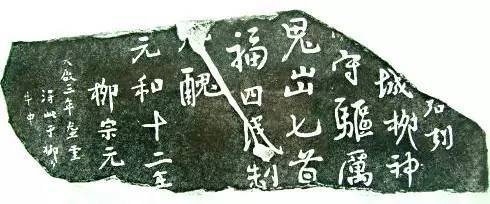 石刻
城柳神
守驅厲
鬼出匕首
福四民制
醜
元和十二年
柳宗元
天啟三年龔重
得此于柳
井中